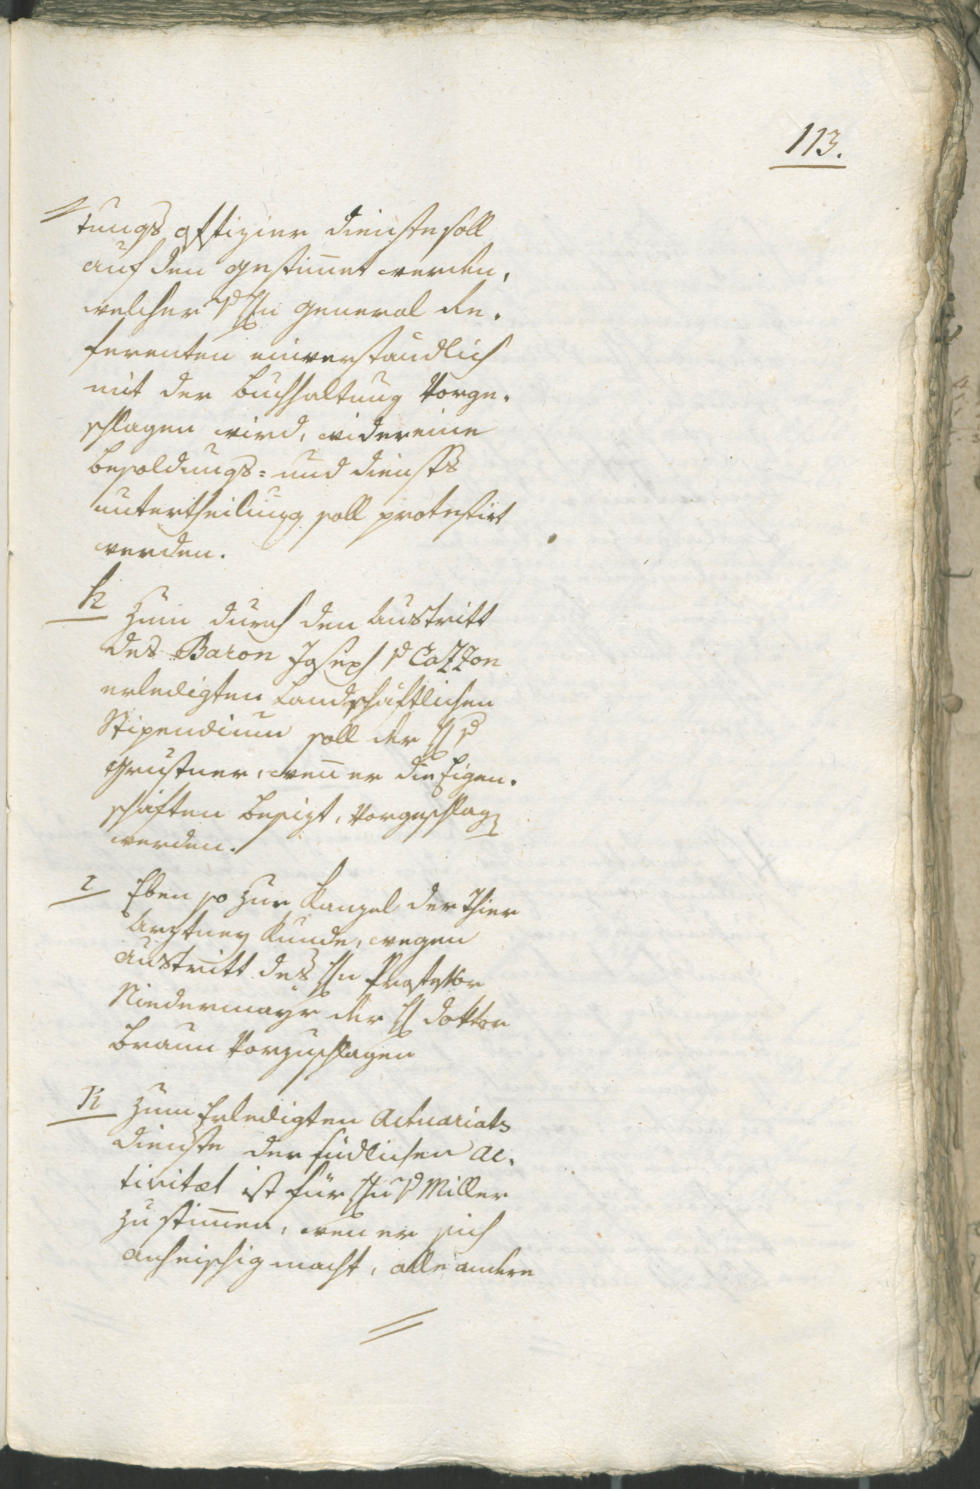 113.
tungs offizier dienste soll
auf den gestim̄et werden,
welcher v H̄n General Re,
ferenten einverstandlich
mit der Buchhaltung Vorge,
schlagen wird, wider eine
Besoldungs= und diensts
untertheilung soll protestirt
werden.
h
Zum durch den Austritt
des Baron Joseph v Cazzon
erledigten Landschäftlichen
Stipendium soll der H v
Grustner, wen̄ er die Eigen,
schaften besizt, Vorgeschlag
werden.
i Eben so zur Kanzel der Thier
Arztney Kunde, wegen
Austritt des H̄n Professor
Niedermayr der H Doktor
Braun Vorzuschlagen
K Zum Erledigten Actuariats
dienste der südlichen Ac,
tivitæt ist für H̄n v Miller
zu stim̄en, wen er sich
anheischig macht, alle andere